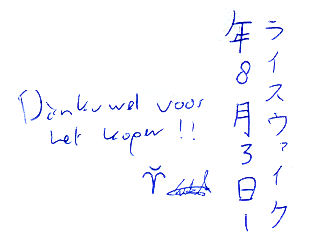 ライスウァイク
年8月3日1
Dankuwel voor
het kopen !!